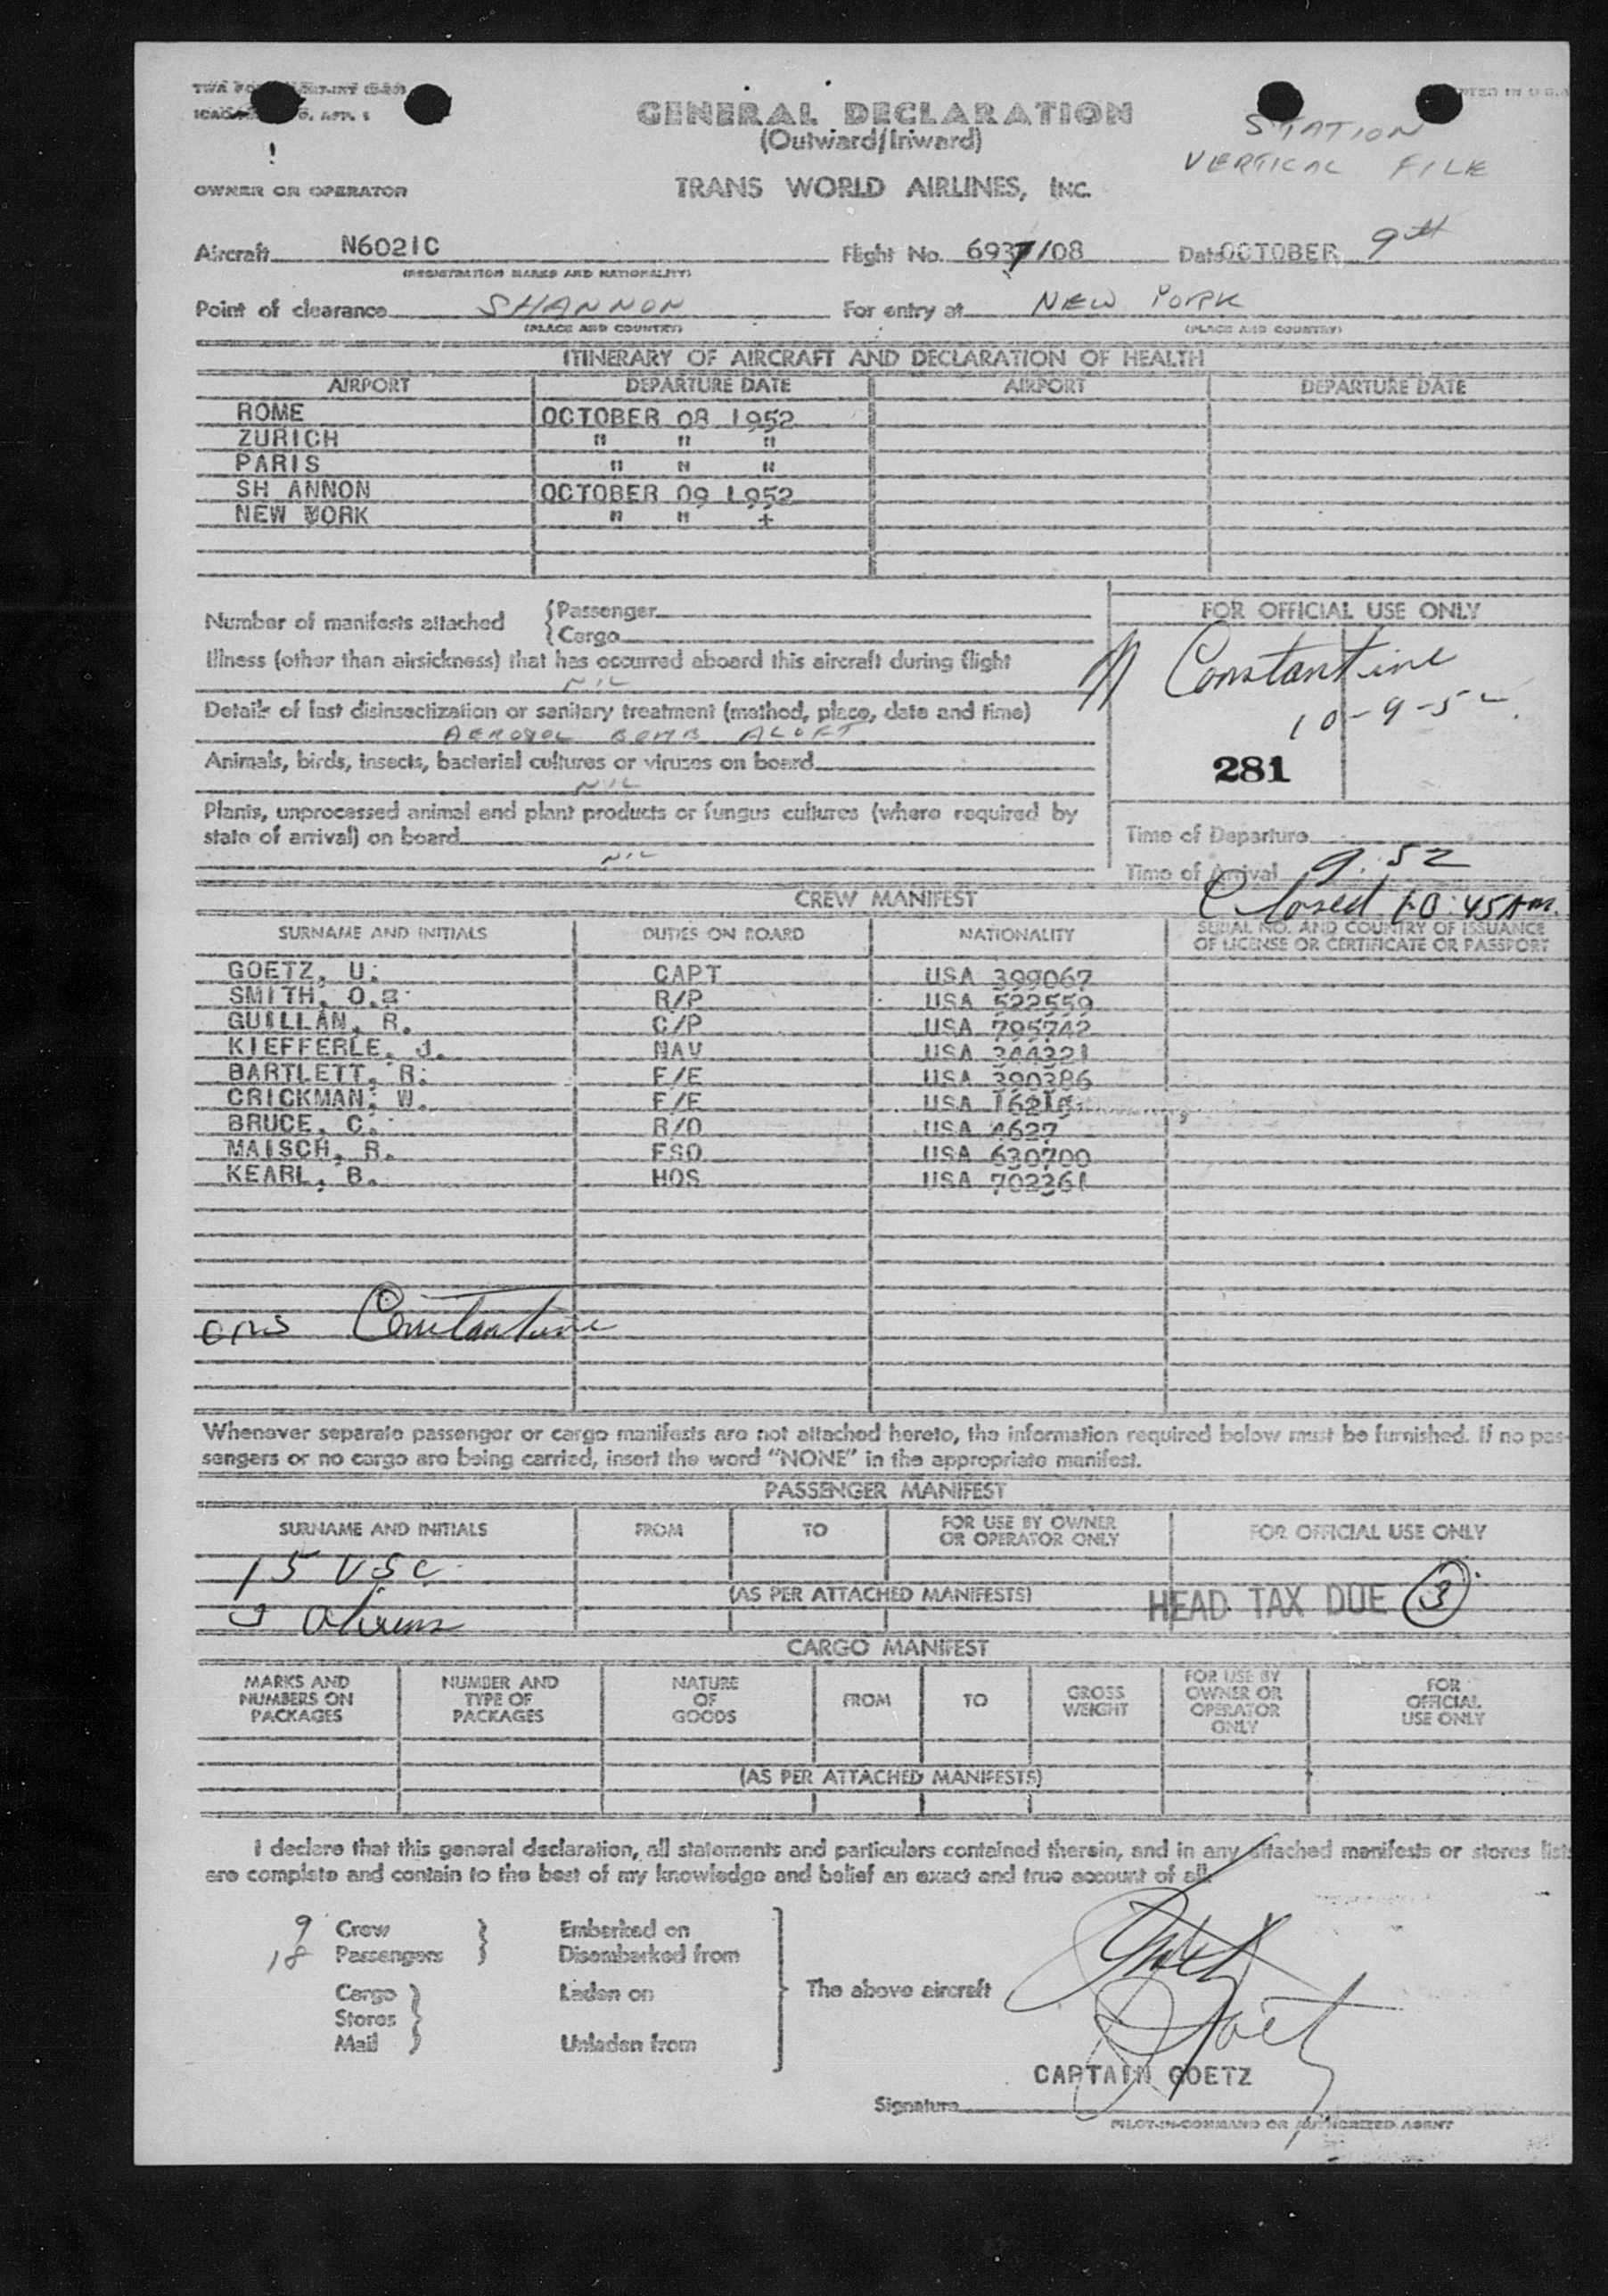 GENERAL DECLARATION
(Outward/Inward)
STATION
VERTICAL FILE
TRANS WORLD AIRLINES, INC.
OWNER OR OPERATOR
Aircraft N6021C Flight No. 6937/08 Date OCTOBER 9th
(REGISTRATION MARKS AND NATIONALITY)
Point of clearance SHANNON For entry at NEW YORK
(PLACE AND COUNTRY) (PLACE AND COUNTRY)
ITINERARY OF AIRCRAFT AND DECLARATION OF HEALTH
AIRPORT DEPARTURE DATE AIRPORT DEPARTURE DATE
ROME OCTOBER 08 1952
ZURICH " " "
PARIS " " "
SH ANNON OCTOBER 09 1952
NEW YORK " " +
Number of manifests attached {Passenger
{Cargo
FOR OFFICIAL USE ONLY
Illness (other than airsickness) that has occurred aboard this aircraft during flight
NIL
Constantine
10-9-52
Details of last disinsectization or sanitary treatment (method, place, date and time)
AEROSOL BOMB ALOFT
Animals, birds, insects, bacterial cultures or viruses on board
NIL
281
Plants, unprocessed animal and plant products or fungus cultures (where required by
state of arrival) on board
NIL
Time of Departure
Time of Arrival 9:52
Closed 10:45 AM.
CREW MANIFEST
SURNAME AND INITIALS DUTIES ON BOARD NATIONALITY SERIAL NO. AND COUNTRY OF ISSUANCE
OF LICENSE OR CERTIFICATE OR PASSPORT
GOETZ, U. CAPT USA 399067
SMITH, O. R/P USA 522559
GUILLAN, R. C/P USA 795742
KIEFFERLE, J. NAV USA 344321
BARTLETT, R. F/E USA 390386
CRICKMAN, W. F/E USA
BRUCE, C. R/O USA 4627
MAISCH, R. FSO USA 630700
KEARL, B. HOS USA 702361
Constantine
Whenever separate passenger or cargo manifests are not attached hereto, the information required below must be furnished. If no pas-
sengers or no cargo are being carried, insert the word "NONE" in the appropriate manifest.
PASSENGER MANIFEST
SURNAME AND INITIALS FROM TO FOR USE BY OWNER
OR OPERATOR ONLY FOR OFFICIAL USE ONLY
15 USC
(AS PER ATTACHED MANIFESTS)
HEAD TAX DUE 3
3 Aliens
CARGO MANIFEST
MARKS AND
NUMBERS ON
PACKAGES
NUMBER AND
TYPE OF
PACKAGES
NATURE
OF
GOODS
FROM
TO
GROSS
WEIGHT
FOR USE BY
OWNER OR
OPERATOR
ONLY
FOR
OFFICIAL
USE ONLY
(AS PER ATTACHED MANIFESTS)
I declare that this general declaration, all statements and particulars contained therein, and in any attached manifests or stores lists
are complete and contain to the best of my knowledge and belief an exact and true account of all
9 Crew } Embarked on
18 Passengers } Disembarked from
Cargo } Laden on
Stores
Mail } Unladen from
The above aircraft
Goetz
CAPTAIN GOETZ
Signature
PILOT-IN-COMMAND OR AUTHORIZED AGENT